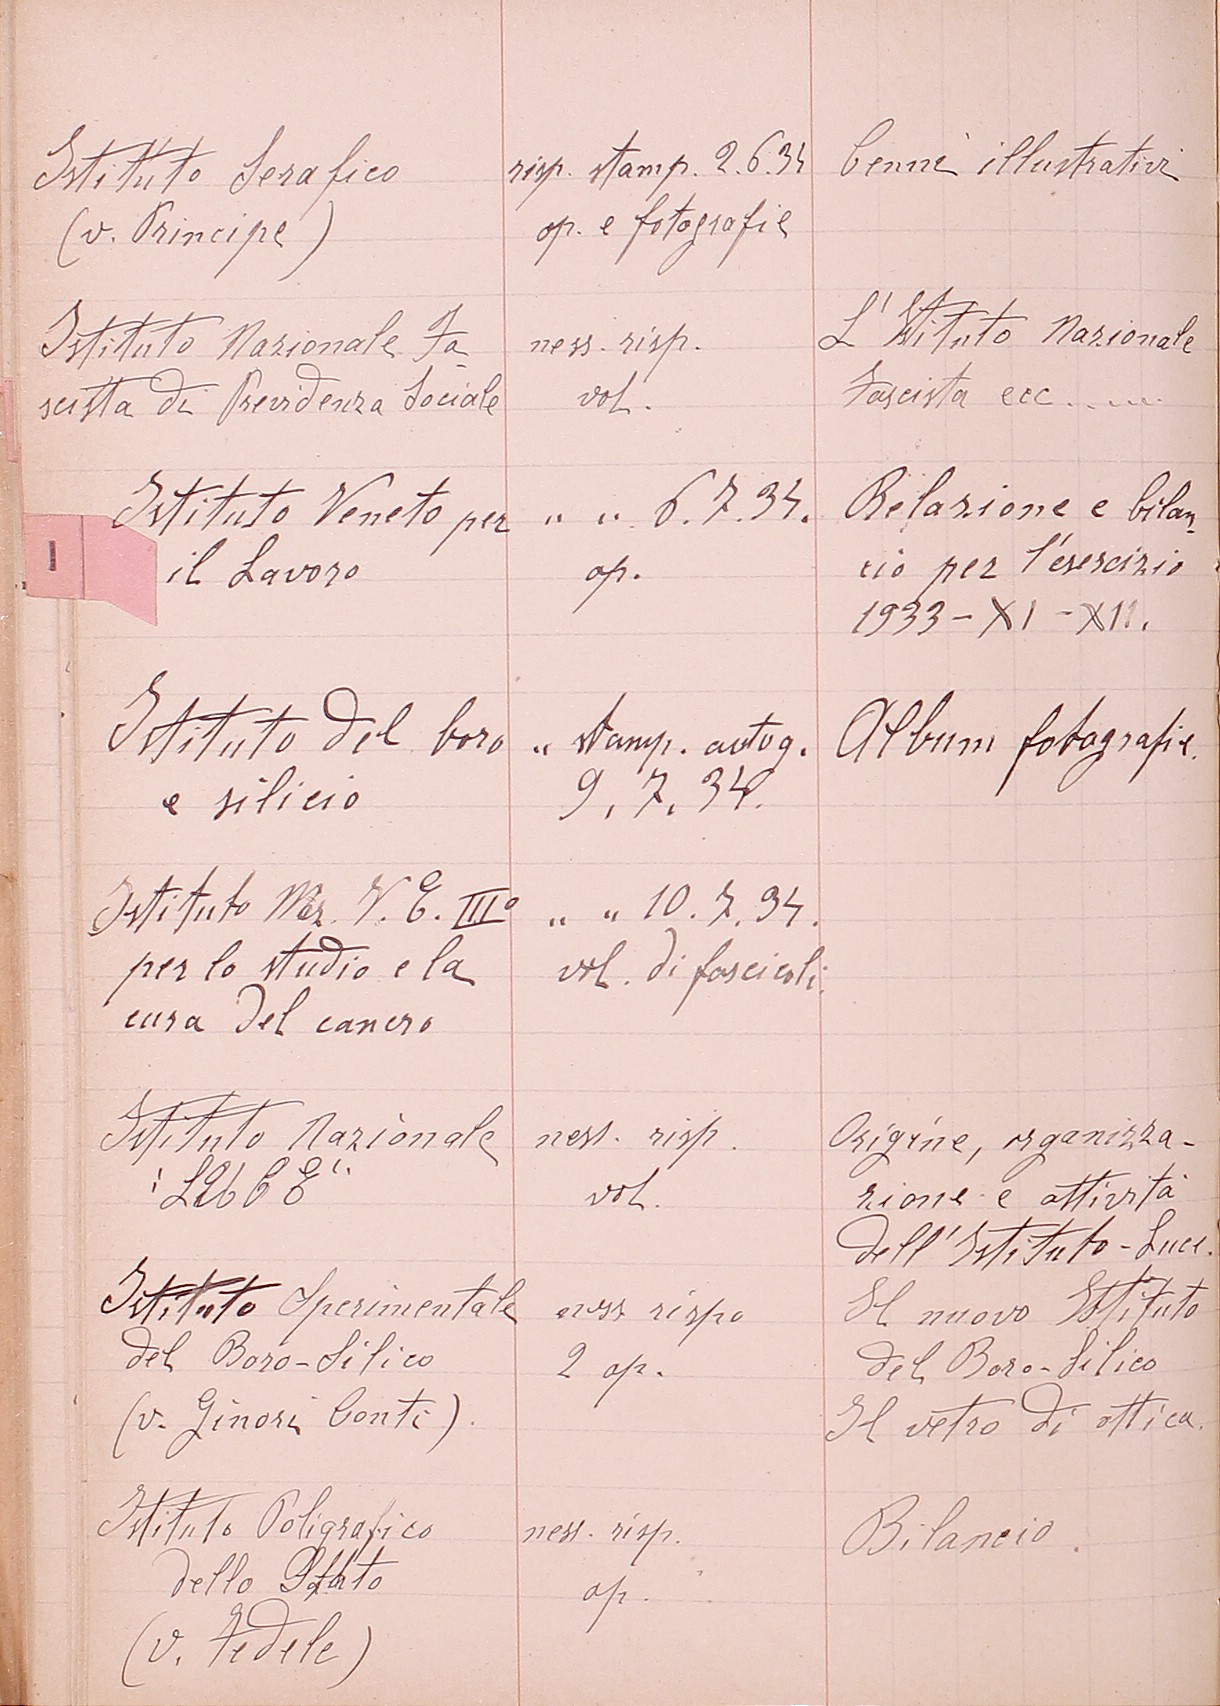 Istituto Serafico
(v. Principe)
risp. stamp. 2.6.34
op. e fotografie
Cenni illustrativi
Istituto Nazionale Fa
scista di Previdenza Sociale
ness. risp.
vol.
L'Istituto Nazionale
Fascista ecc......
Istituto Veneto per
il Lavoro
" " 6.7.34.
op.
Relazione e bilan
cio per l'esercizio
1933-XI-XII.
I
Istituto del boro
e silicio
" stamp. autog.
9.7.34.
Album fotografie.
Istituto V. E. IIIº
per lo studio e la
cura del cancro
" " 10.7.34.
vol. di fascicoli.
Istituto Nazionale
ness. risp.
vol.
Origine, organizza-
zione e attività
dell'Istituto-Luce.
Istituto Sperimentale
del Boro-Silico
(v. Ginori Conti).
ness rispo
2 op.
Il nuovo Istituto
del Boro-Silico
Il vetro di ottica.
Istituto Poligrafico
dello Stato
(v. Fedele)
ness. risp.
op.
Bilancio.